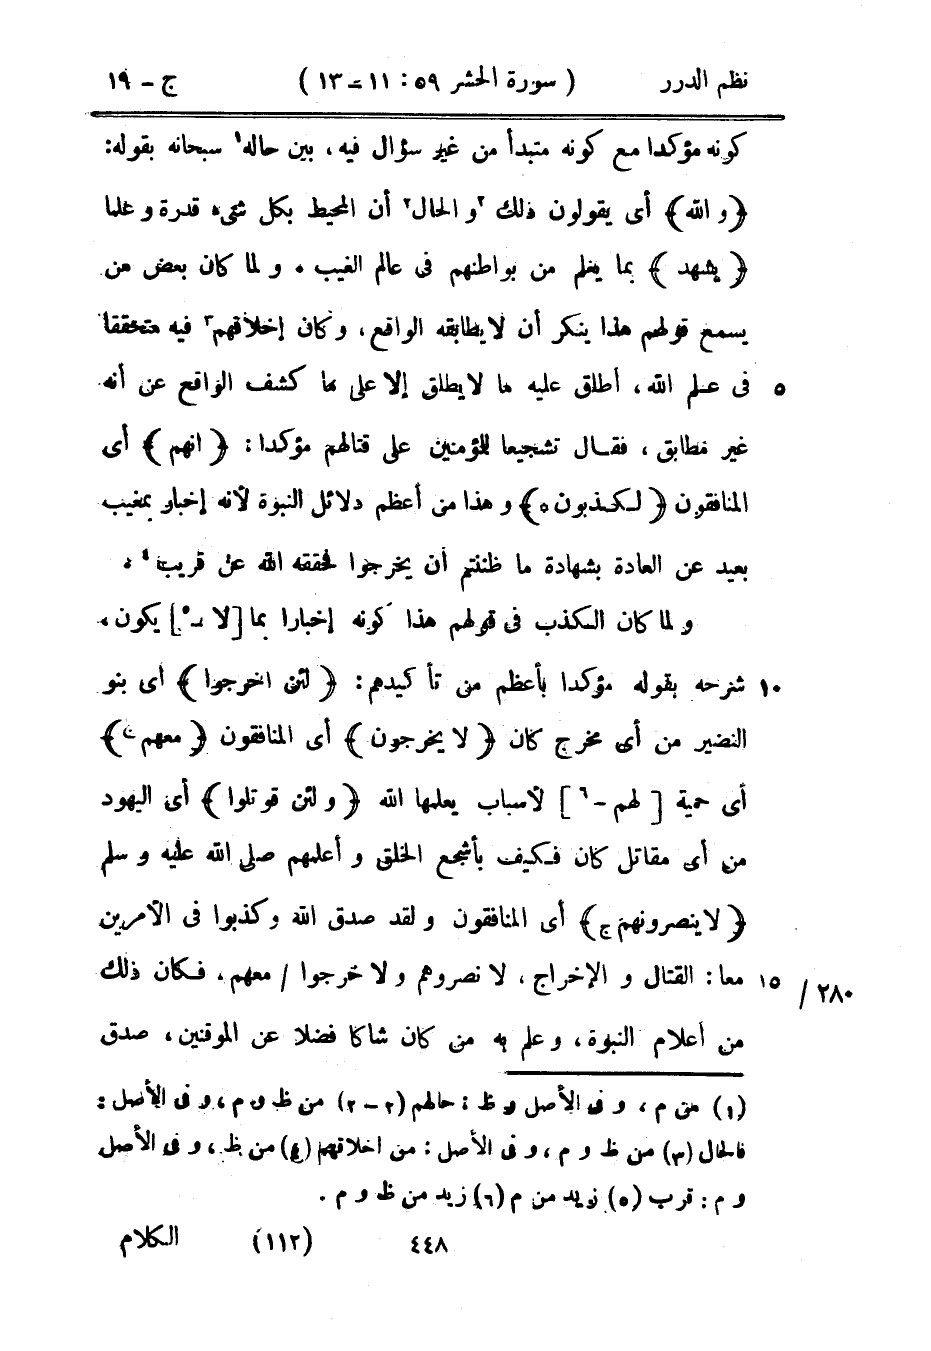 نظم الدرر ( سورة الحشر ٥٩ : ١١ – ١٣ ) ج – ١٩
كونه مؤكدا مع كونه مبتدأ من غير سؤال فيه ، بين حاله١ سبحانه بقوله :
﴿ و الله ﴾ أى يقولون ذلك ٢و الحال٢ أن المحيط بكل شىء قدرة و علما
﴿ يشهد ﴾ بما يعلم من بواطنهم فى عالم الغيب . و لما كان بعض من
يسمع قولهم هذا ينكر أن لا يطابقه الواقع ، و كان إخلافهم٣ فيه متحققا
٥ فى علم الله ، أطلق عليه ما لا يطلق إلا على ما كشف الواقع عن أنه
غير مطابق ، فقال تشجيعا للمؤمنين على قتالهم مؤكدا : ﴿ انهم ﴾ أى
المنافقون ﴿ لكٰذبون ه ﴾ و هذا من أعظم دلائل النبوة لأنه إخبار بمغيب
بعيد عن العادة بشهادة ما ظننتم أن يخرجوا فحققه الله عن قريب٤ .
و لما كان الكذب فى قولهم هذا كونه إخبارا بما [ لا –٥ ] يكون ،
١٠ شرحه بقوله مؤكدا بأعظم من تأكيدهم : ﴿ لئن اخرجوا ﴾ أى بنو
النضير من أى مخرج كان ﴿ لا يخرجون ﴾ أى المنافقون ﴿ معهم ج ﴾
أى حمية [ لهم –٦ ] لأسباب يعلمها الله ﴿ و لئن قوتلوا ﴾ أى اليهود
من أى مقاتل كان فكيف بأشجع الخلق و أعلمهم صلى الله عليه و سلم
﴿ لا ينصرونهم ج ﴾ أى المنافقون و لقد صدق الله و كذبوا فى الأمرين
١٥ معا : القتال و الإخراج ، لا نصروهم و لا خرجوا / معهم ، فكان ذلك / ٢٨٠
من أعلام النبوة ، و علم به من كان شاكا فضلا عن الموقنين ، صدق
(١) من م ، و فى الأصل و ظ : حالهم (٢–٢) من ظ و م ، و فى الأصل :
فالحال (٣) من ظ و م ، و فى الأصل : من اخلاقهم (٤) من ظ ، و فى الأصل
و م : قرب (٥) زيد من م (٦) زيد من ظ و م .
٤٤٨ (١١٢) الكلام